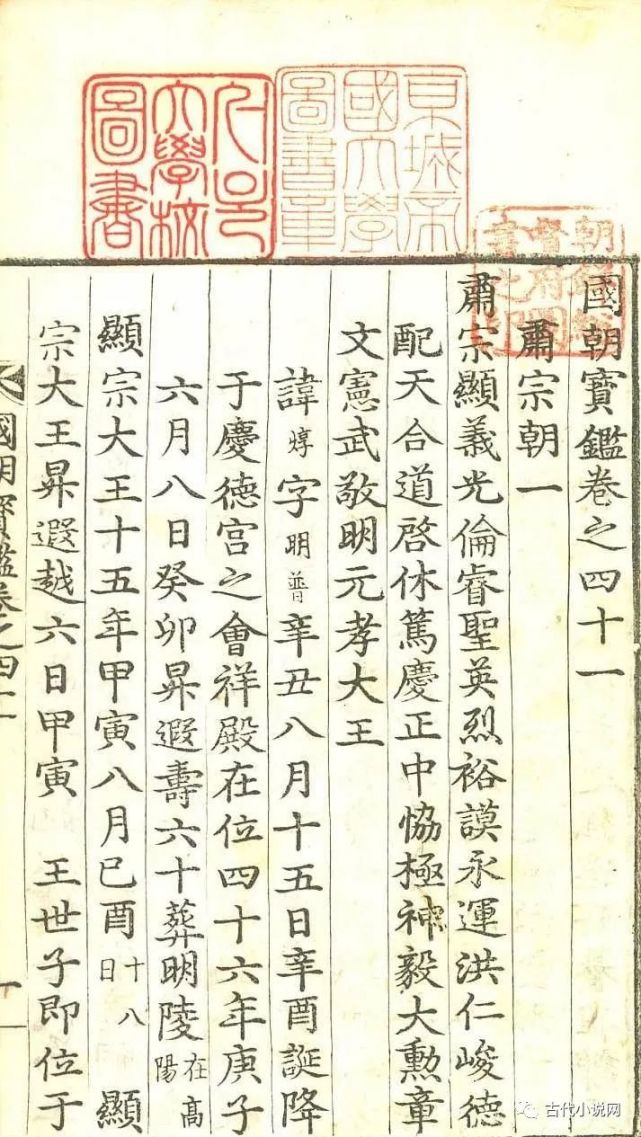 京城帝
國大學
圖書章
大學校
圖書
國朝寶鑑卷之四十一
肅宗朝一
肅宗顯義光倫睿聖英烈裕謨永運洪仁峻德
配天合道啓休篤慶正中恊極神毅大勳章
文憲武敬明元孝大王
諱焞字明普辛丑八月十五日辛酉誕降
于慶德宮之會祥殿在位四十六年庚子
六月八日癸卯昇遐壽六十葬明陵在高陽
顯宗大王十五年甲寅八月巳酉十八日 顯
宗大王昇遐越六日甲寅 王世子即位于
國朝寶鑑卷之四十一
古代小说网